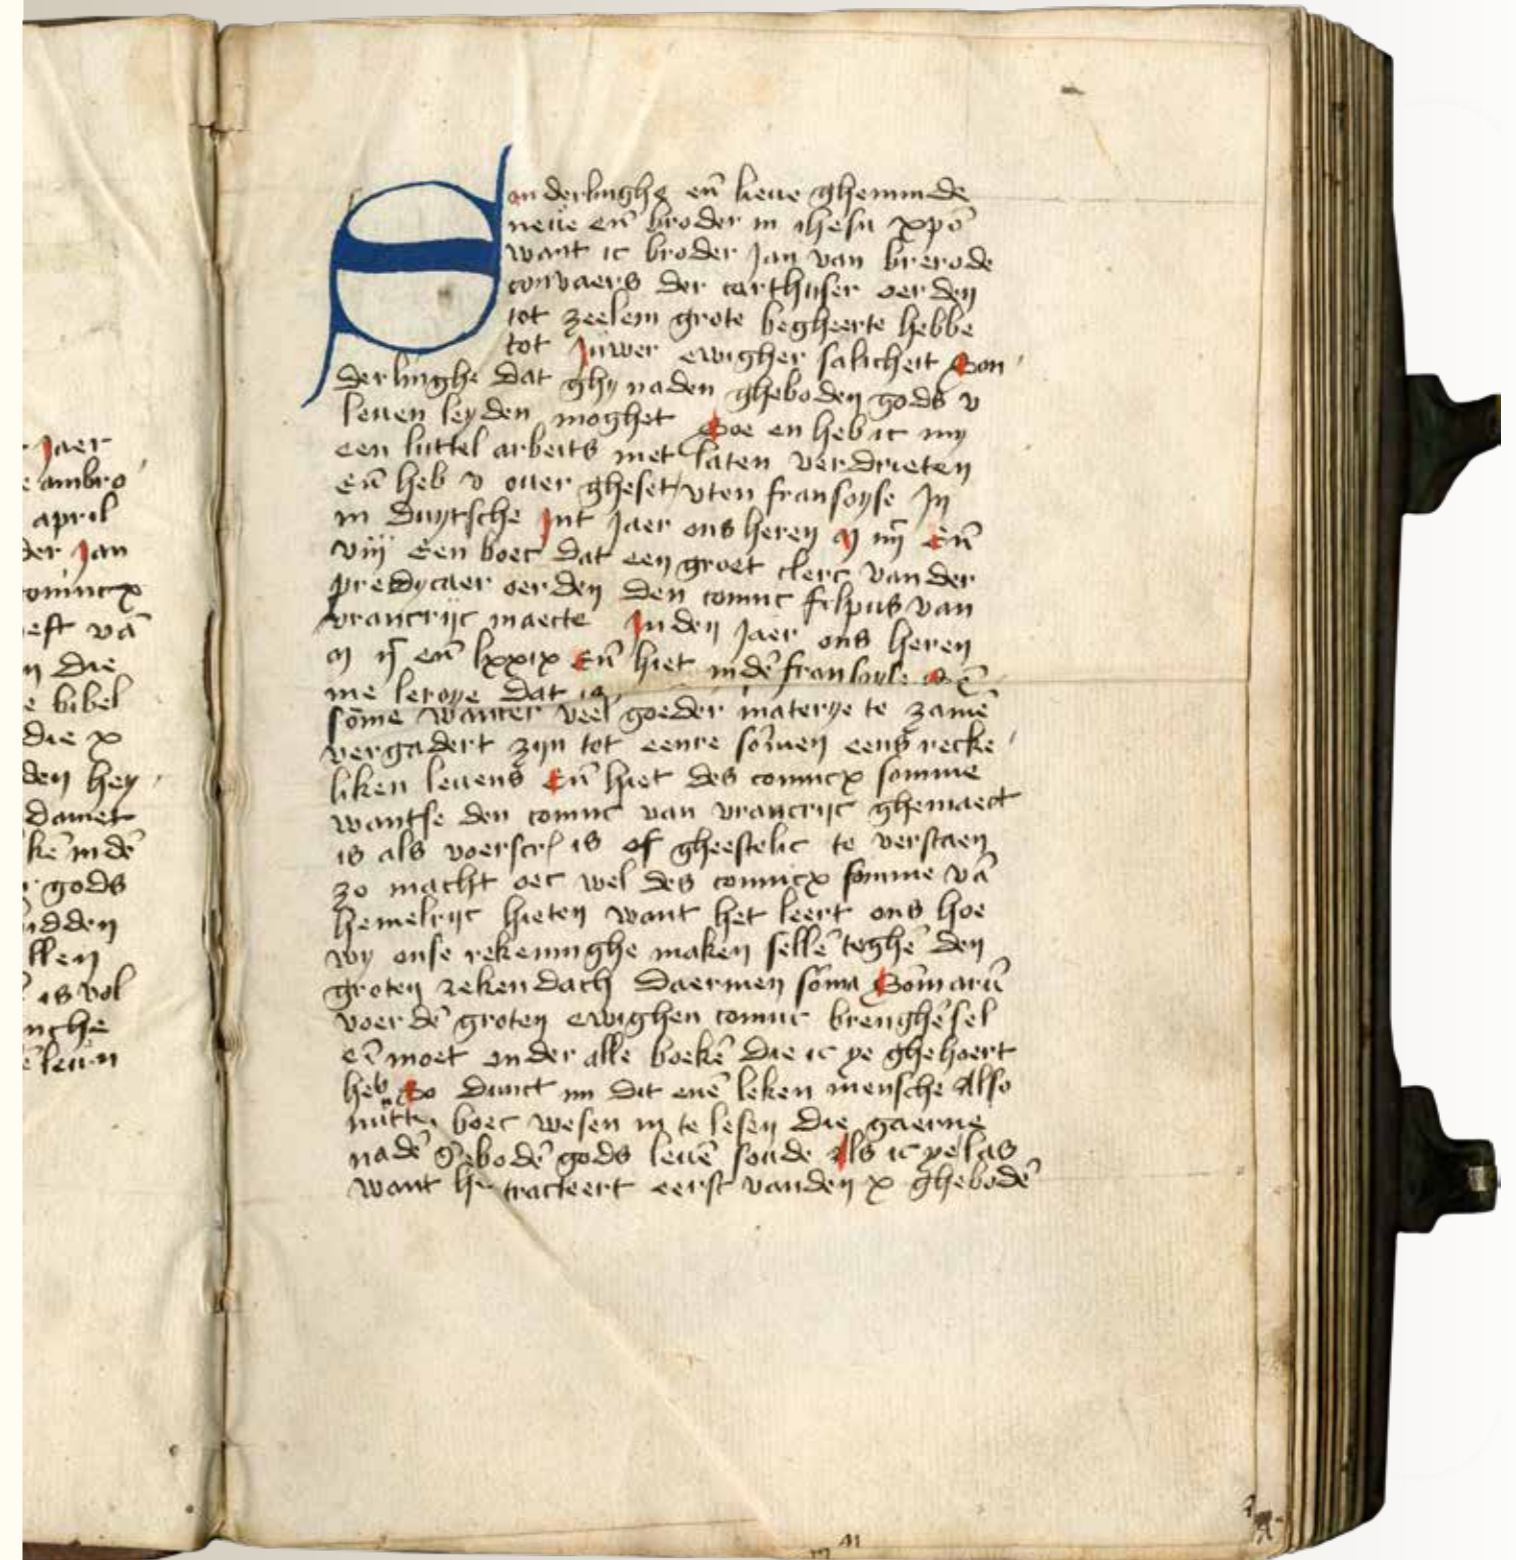 Jaer
ambro
april
der Jan
conincx
eft vā
n die
e bibel
die x
den hey
damet
kē indē
gods
idden
llen
is vol
nche
ē leuen
Sonderlinghe eñ lieue gheminde
neue eñ broder in ihesu xpō
want ic broder Jan van brerode
convaers der carthuser oerden
tot zeelem grote begheerte hebbe
tot Juwer ewigher salicheit Son
derlinghe dat ghy naden gheboden gods v
leuen leyden moghet Soe en heb ic my
een luttel arbeits niet laten verdrieten
eñ heb v ouer gheset vten fransoyse In
in duytsche Int Jaer ons heren M iiijc Eñ
viij Een boec dat een groet clerc van der
predycaer oerden den coninc filpus van
vrancrijc maecte Inden Jaer ons heren
M ijc eñ lxxix Eñ hiet indē fransoyse Sō
me leroye dat is
sōme wancer veel goeder materye te zamē
vergadert zijn tot eenre sōmen eens recke
liken leuens Eñ hiet des conincx somme
wantse den coninc van vrancrijc ghemaect
is als voerscr is of gheestelic te verstaen
zo macht oec wel des conincx somme vā
hemelrijc hieten want het leert ons hoe
wy onse rekeninghe maken sellē teghē den
groten rekendach daermen sōma Sōmarū
voer dē groten ewighen coninc brenghē sel
eñ moet onder alle boekē die ic ye ghehoert
heb So dunct mi dit enē leken mensche Also
nutten boec wesen in te lesen die gaerne
nadē gebodē gods leuē soude Als ic ye las
want he tracteert eerst vanden x ghebodē